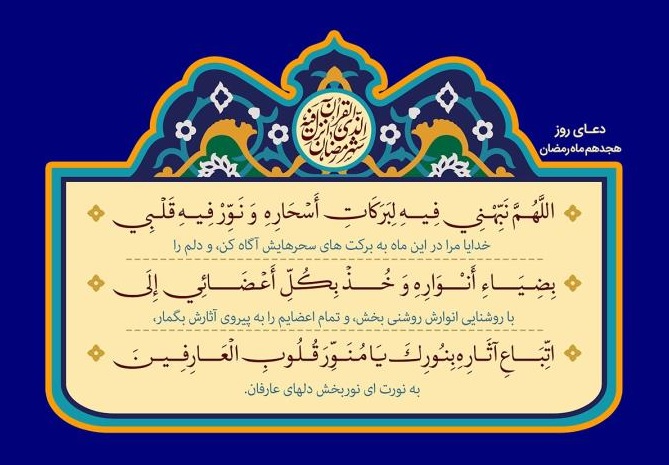 شَهرُ رَمَضانَ الَّذی اُنزِلَ فیهِ القُرآن
دعـای روز
هجدهم ماه رمضان
اللَّهُمَّ نَبِّهْنِي فِيهِ لِبَرَكَاتِ أَسْحَارِهِ وَ نَوِّرْ فِيهِ قَلْبِي
خدایا مرا در این ماه به برکت های سحرهایش آگاه کن، و دلم را
بِضِيَاءِ أَنْوَارِهِ وَ خُذْ بِكُلِّ أَعْضَائِي إِلَى
با روشنایی انوارش روشنی بخش، و تمام اعضایم را به پیروی آثارش بگمار،
اتِّبَاعِ آثَارِهِ بِنُورِكَ يَا مُنَوِّرَ قُلُوبِ الْعَارِفِينَ
به نورت ای نوربخش دلهای عارفان.